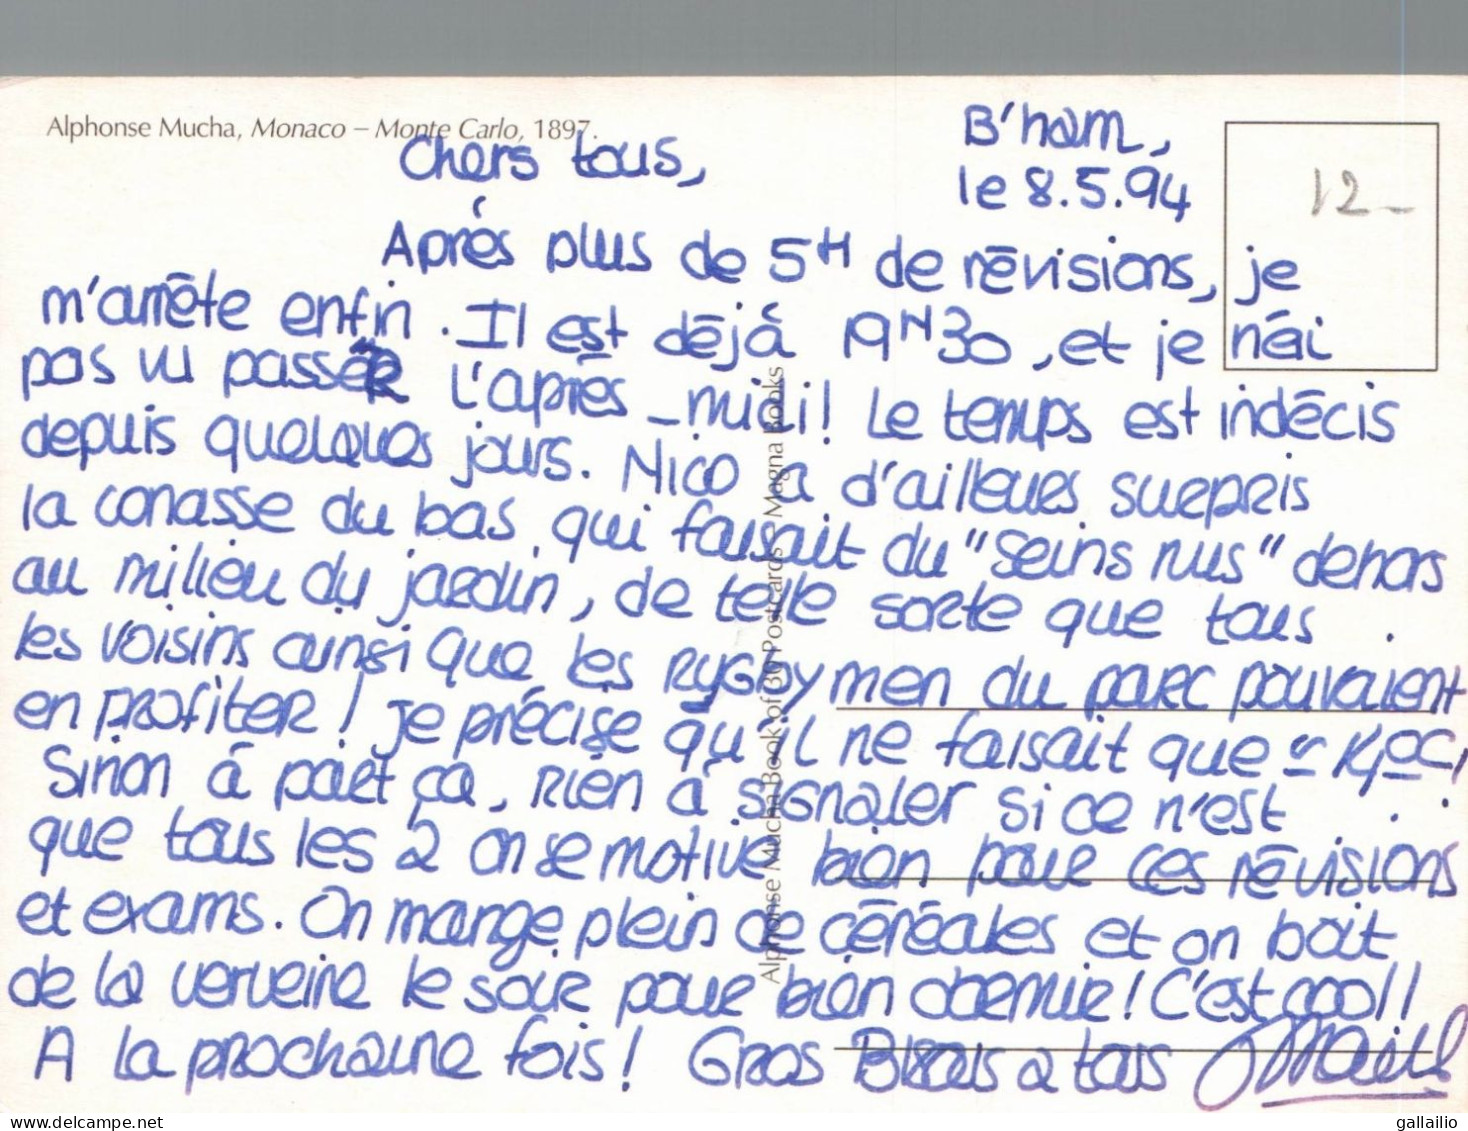 Alphonse Mucha, Monaco – Monte Carlo, 1897.
B'ham,
le 8.5.94
12 -
Chers tous,
Après plus de 5H de révisions, je
m'arrête enfin. Il est déjà 19H30, et je n'ai
pas vu passer l'après-midi! Le temps est indécis
depuis quelques jours. Nico a d'ailleurs surpris
la conasse du bas, qui faisait du "seins nus" dehors
au milieu du jardin, de telle sorte que tous
les voisins ainsi que les rugbymen du parc pouvaient
en profiter! Je précise qu'il ne faisait que
Sinon à part ça, rien à signaler si ce n'est
que tous les 2 on se motive bien pour ces révisions
et exams. On mange plein de céréales et on boit
de la verveine le soir pour bien dormir! C'est cool!
A la prochaine fois! Gros Bisous à tous
Alphonse Mucha Book of 30 Postcards – Magna Books
gallailio